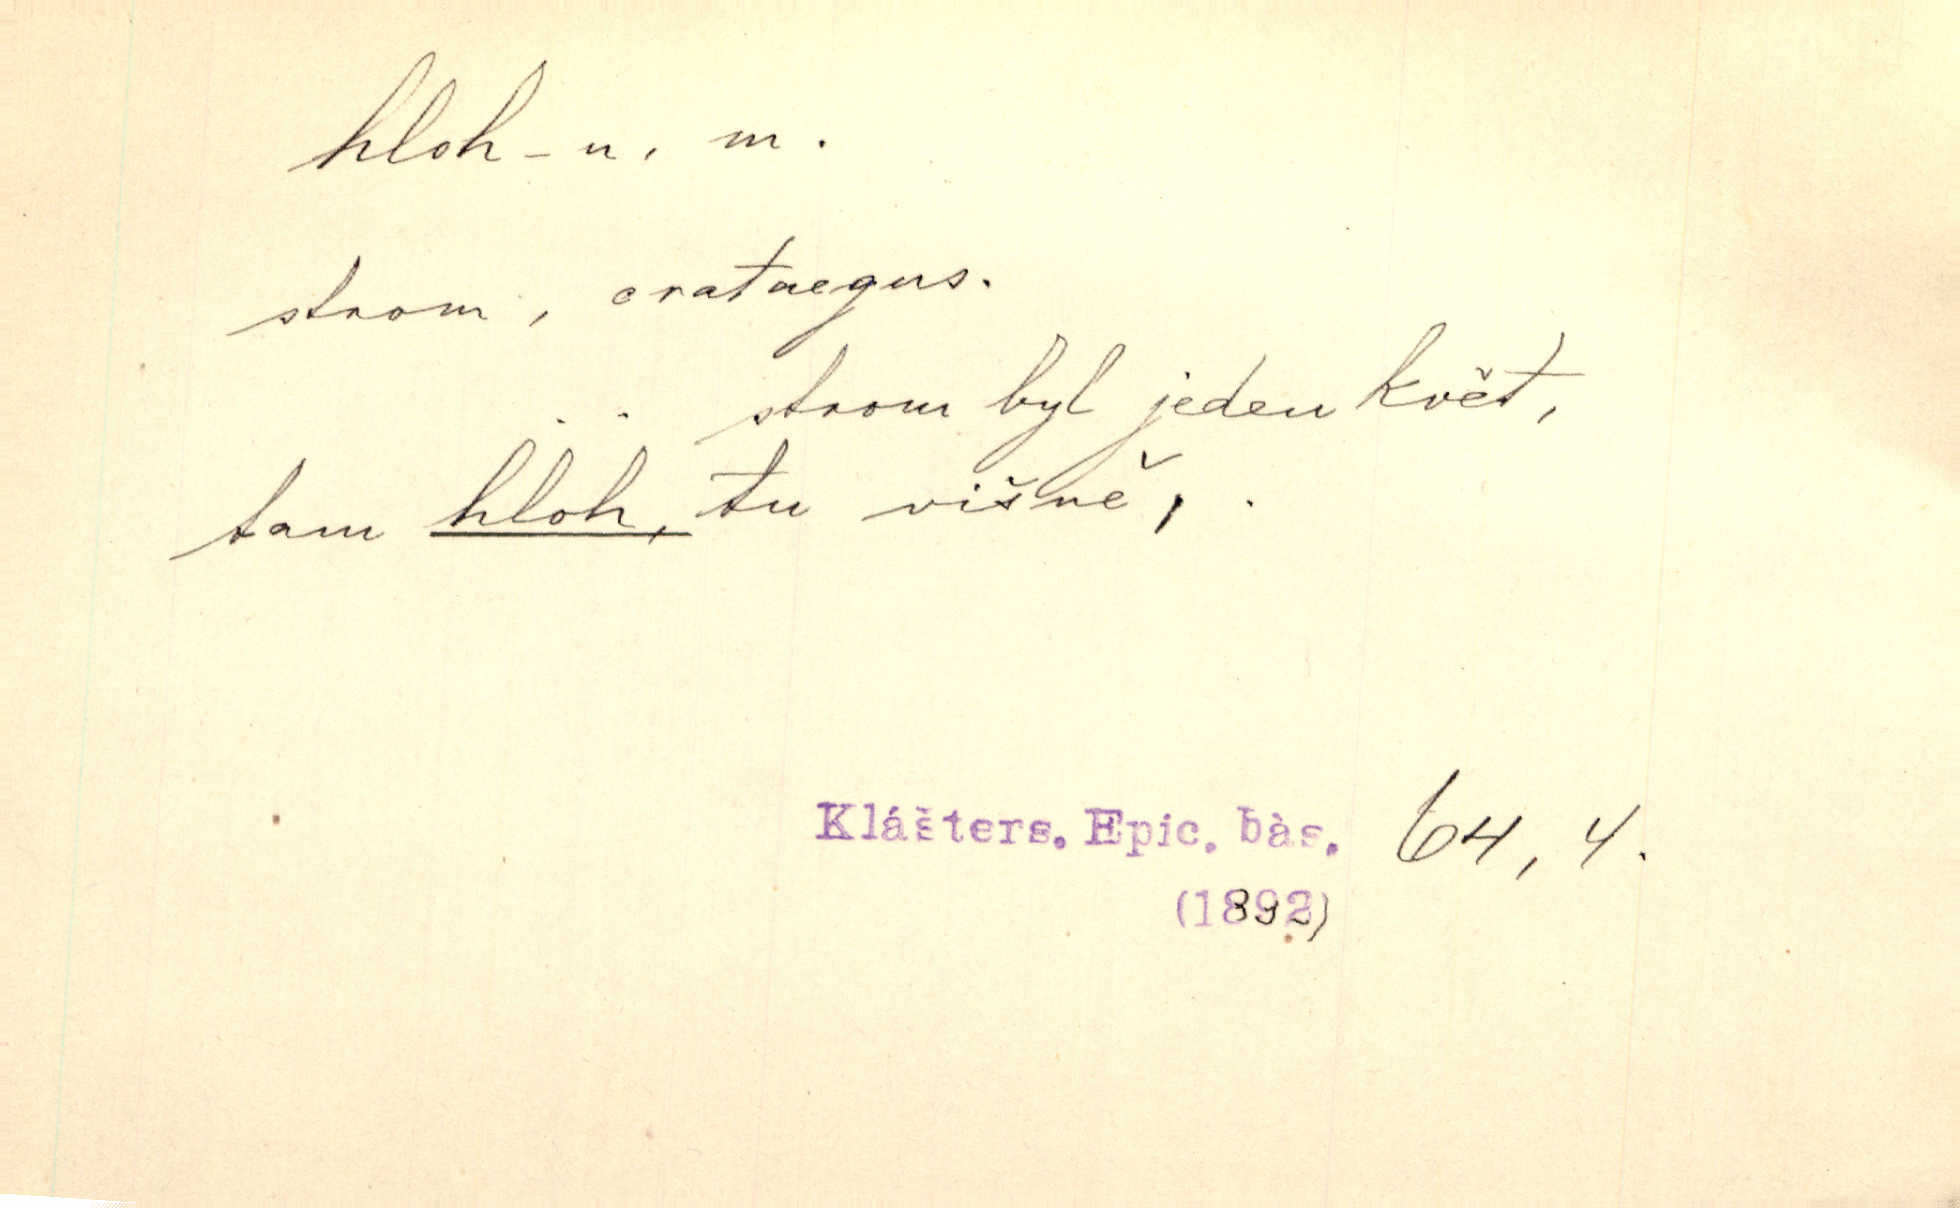 hloh-u, m.
strom, crataegus.
.. strom byl jeden květ,
tam hloh, tu višně, .
Klášters. Epic. bàs. 64, 4.
(1892)